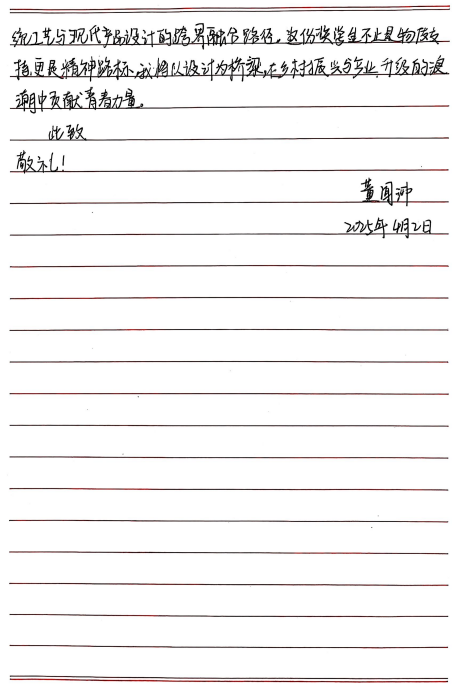 统工艺与现代产品设计的跨界融合路径。这份奖学金不止是物质支
持,更是精神路标,我将以设计为桥梁,在乡村振兴与产业升级的浪
潮中贡献青春力量。
此致
敬礼!
董闻沖
2025年4月2日